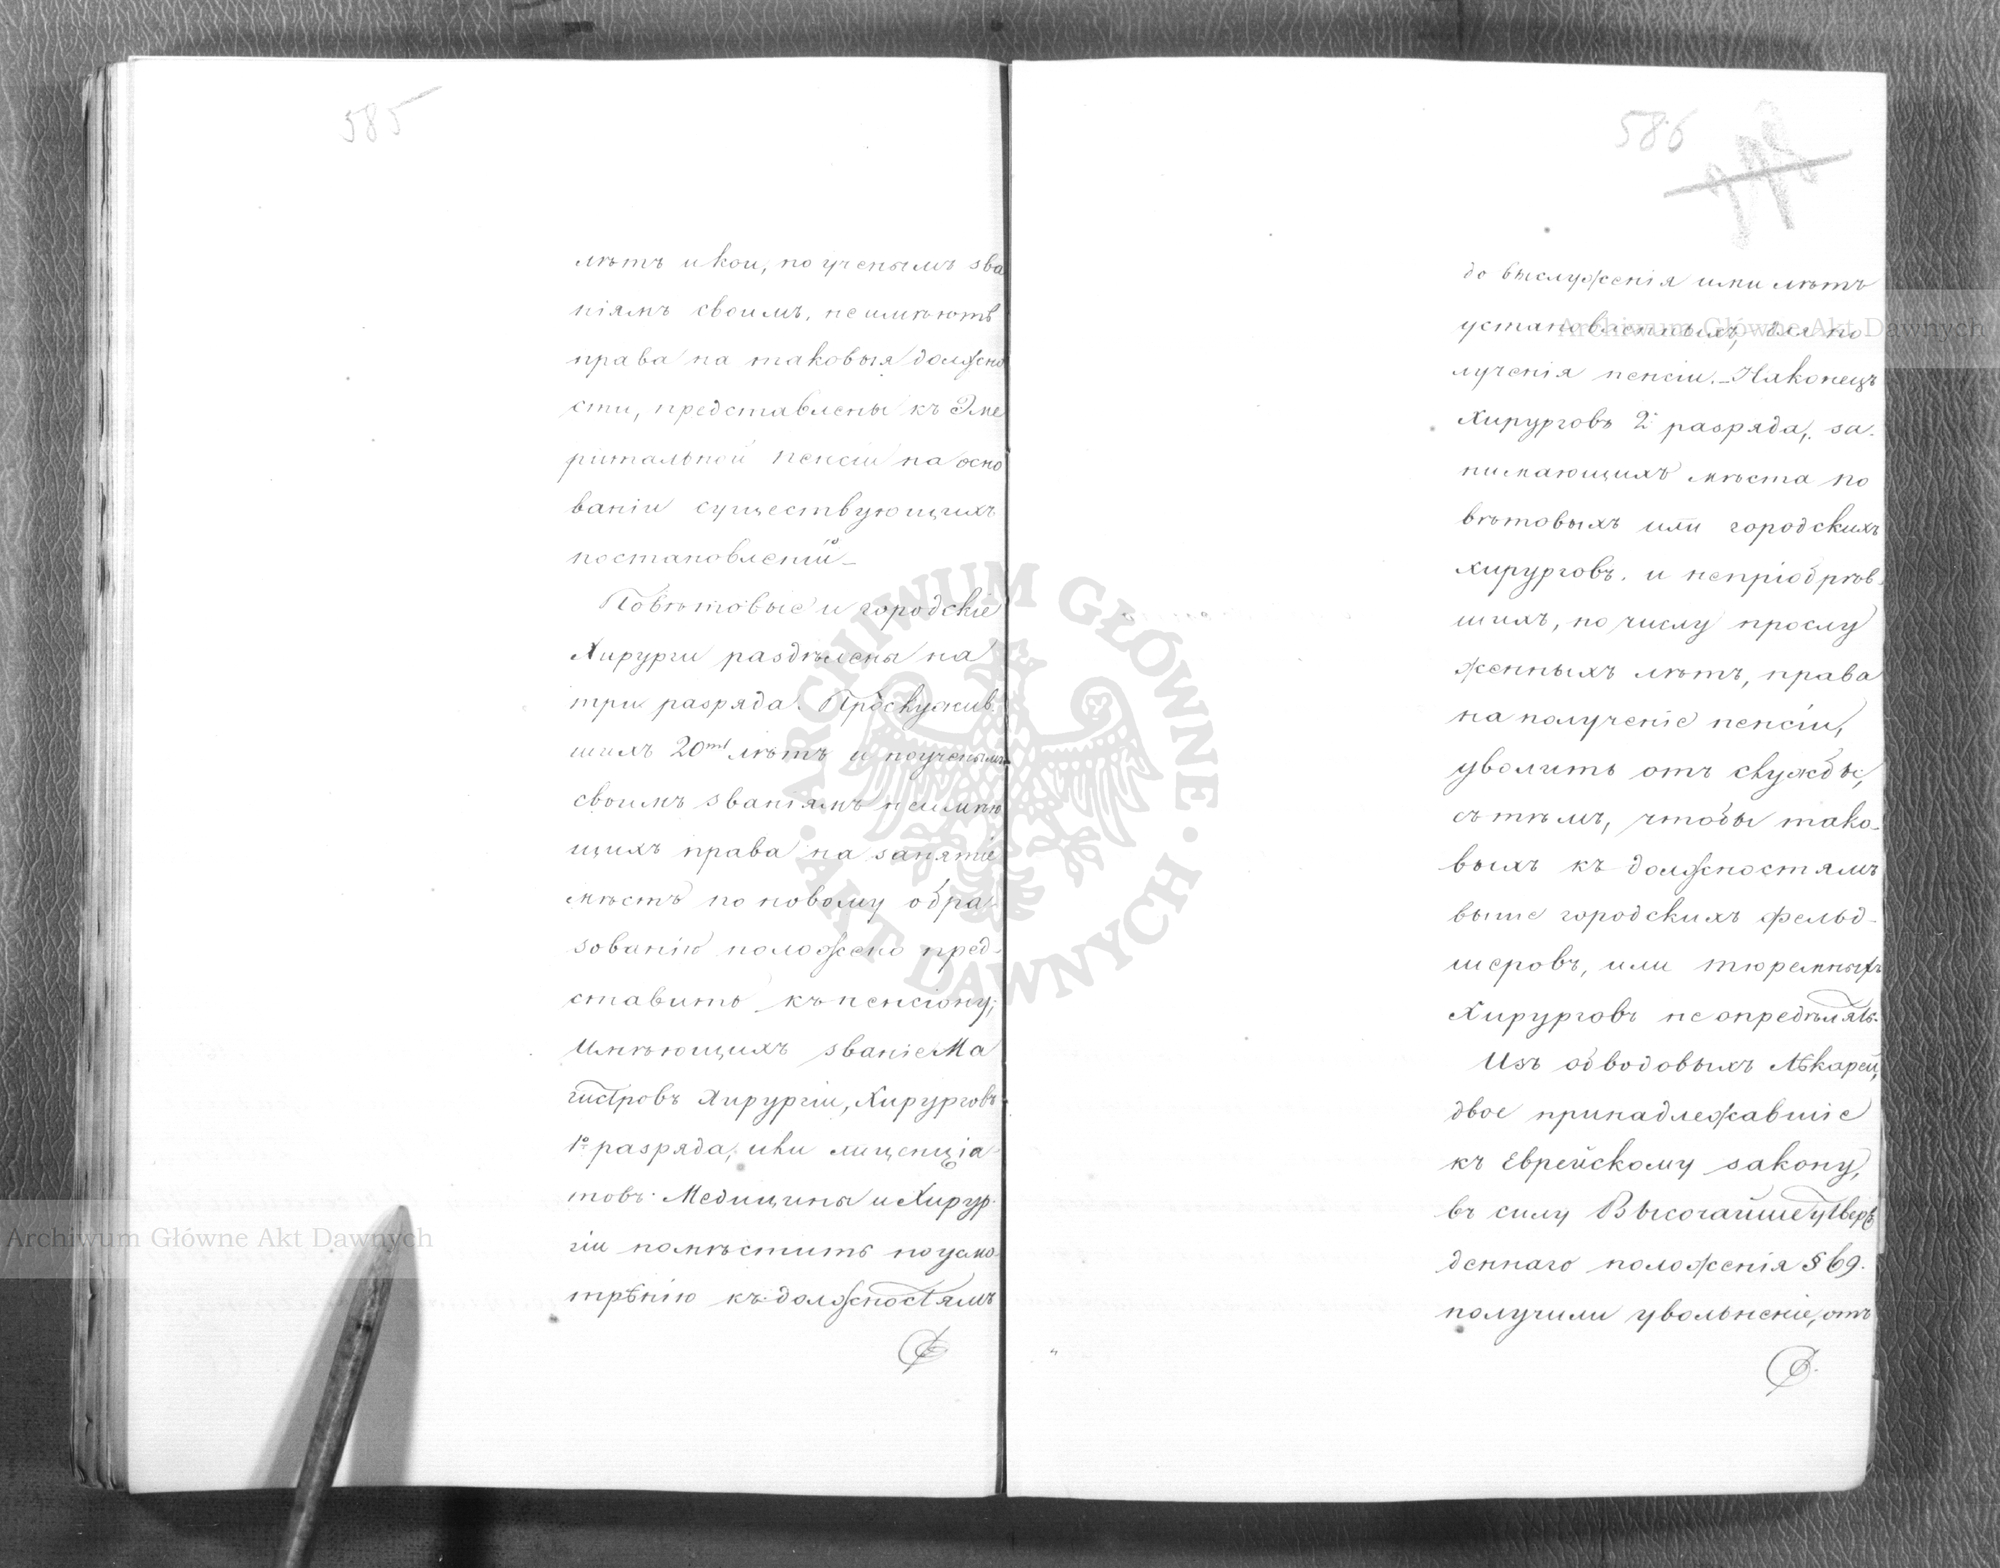 585
лѣтъ и кои, по ученымъ зва
ніямъ своимъ, не имѣютъ
права на таковыя должно
сти, представлены къ Эме
ритальной пенсіи на осно
ваніи существующихъ
постановленій_
Повѣтовые и городскіе
Хирурги раздѣлены на
три разряда. Прослужив
шихъ 20ти лѣтъ и по ученымъ
своимъ званіямъ не имѣю
щихъ права на занятіе
мѣстъ по новому обра-
зованію положено пред-
ставить къ пенсіону;
Имѣющихъ званіе Ма
гистровъ Хирургіи, Хирурговъ
1о разряда, или лиценціа
товъ Медицины и Хирур
гіи помѣстить по усмо
трѣнію къ должностямъ
586
до выслуженія ими лѣтъ
установленныхъ, для по
лученія пенсіи._ Наконецъ
Хирурговъ 2 разряда, за-
нимающихъ мѣста по
вѣтовыхъ или городскихъ
хирурговъ. и непріобрѣв-
шихъ, по числу прослу
женныхъ лѣтъ, права
на полученіе пенсіи,
уволить отъ службы,
съ тѣмъ, чтобы тако-
выхъ къ должностямъ
выше городскихъ фельд-
шеровъ, или тюремныхъ
Хирурговъ не опредѣлять.
Изъ обводовыхъ Лѣкарей,
двое принадлежавшіе
къ Еврейскому закону,
въ силу Высочайше утверж
деннаго положенія § 69.
получили увольненіе, отъ
Archiwum Główne Akt Dawnych
Archiwum Główne Akt Dawnych
ARCHIWUM GŁÓWNE
AKT DAWNYCH